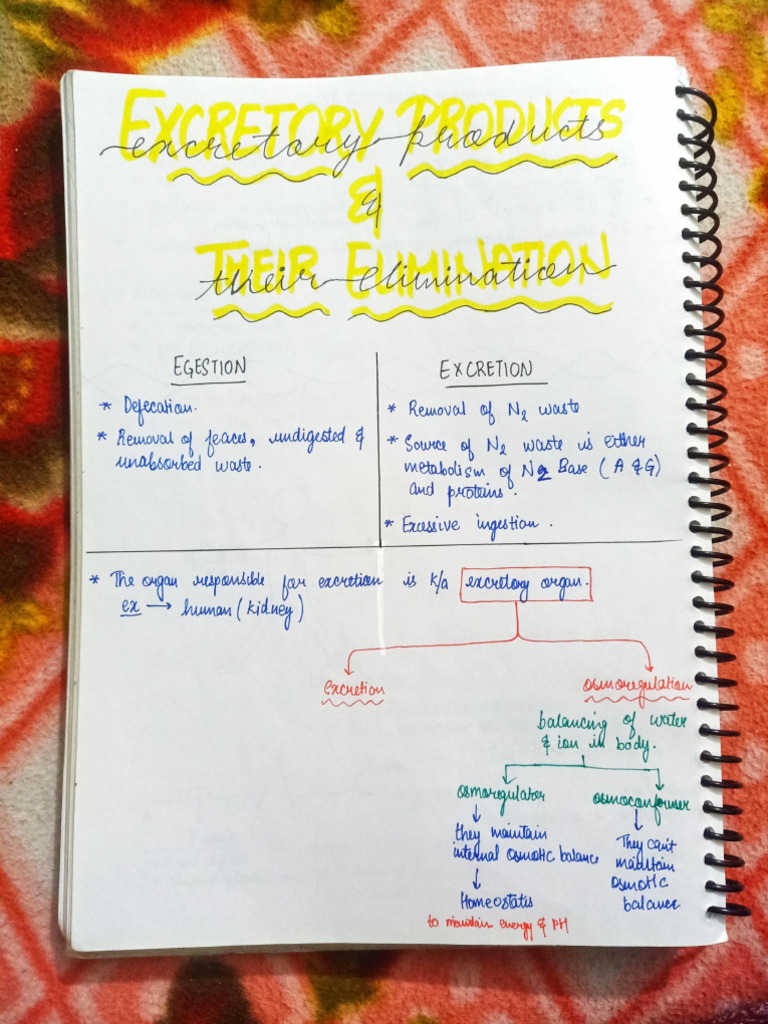 EXCRETORY PRODUCTS
excretory products
&
&
THEIR ELIMINATION
their elimination
EGESTION
* Defecation.
* Removal of feaces, undigested &
unabsorbed waste.
EXCRETION
* Removal of N2 waste
* Source of N2 waste is either
metabolism of N2 Base (A & G)
and proteins.
* Excessive ingestion.
* The organ responsible for excretion is k/a excretory organ.
ex → human (kidney)
excretion
osmoregulation
balancing of water
& ion in body.
osmoregulater
they maintain
internal osmotic balance
Homeostatis
to maintain energy & PH
osmoconformer
They can't
maintain
osmotic
balance